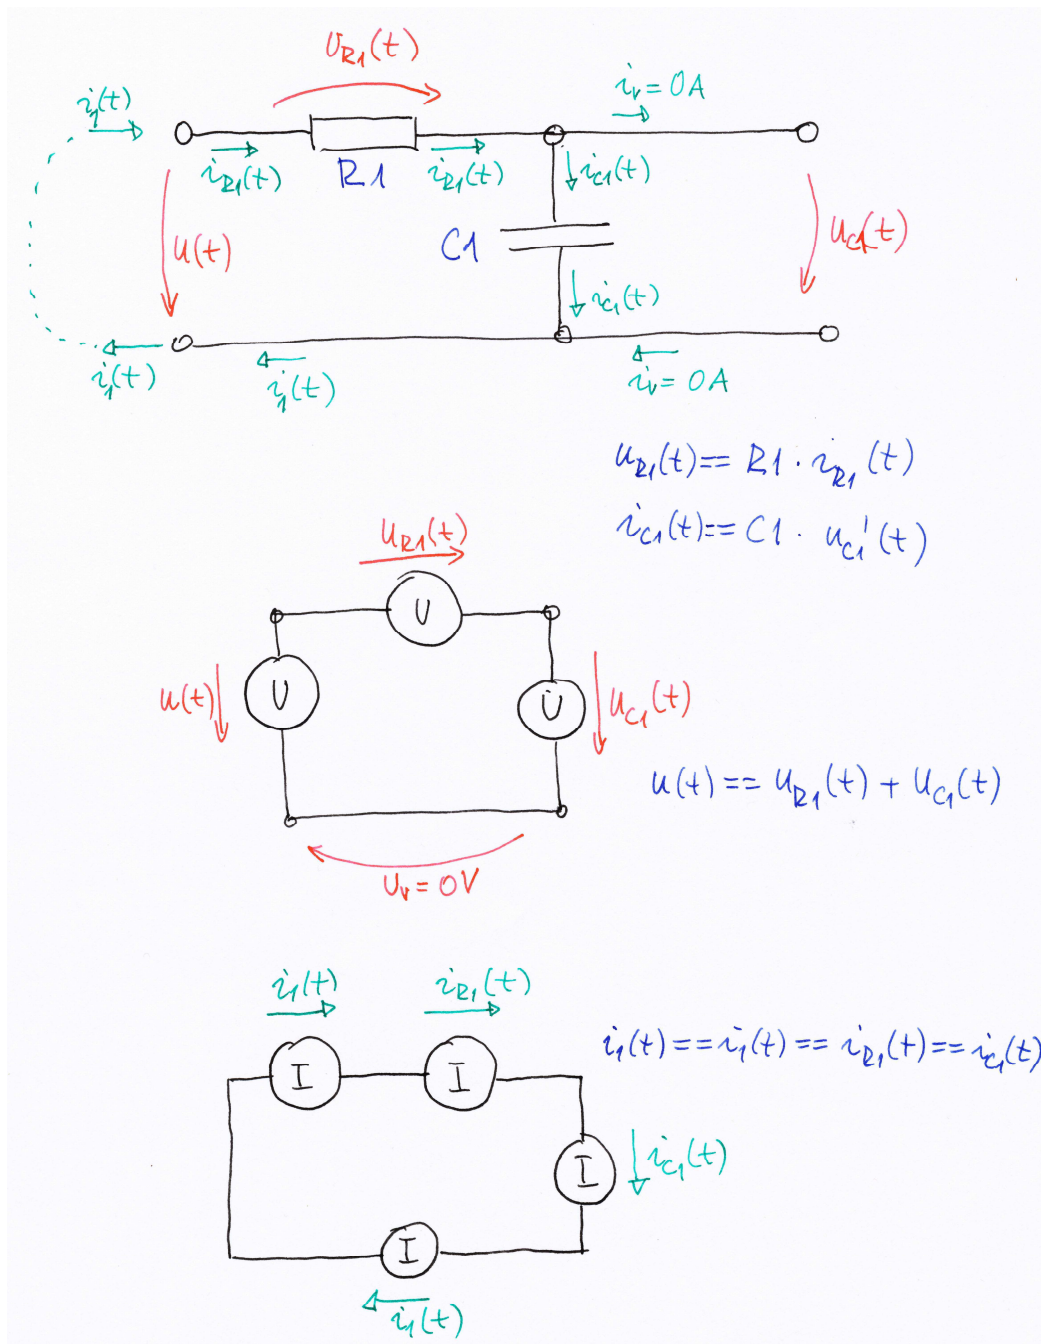 u_R1(t)
i_1(t)
i_v = 0A
i_R1(t)
R1
i_R1(t)
i_C1(t)
u(t)
C1
u_C1(t)
i_C1(t)
i_1(t)
i_1(t)
i_v = 0A
u_R1(t) == R1 · i_R1(t)
i_C1(t) == C1 · u_C1'(t)
u_R1(t)
U
u(t)
U
U
u_C1(t)
u(t) == u_R1(t) + u_C1(t)
u_v = 0V
i_1(t)
i_R1(t)
I
I
i_1(t) == i_1(t) == i_R1(t) == i_C1(t)
I
i_C1(t)
I
i_1(t)